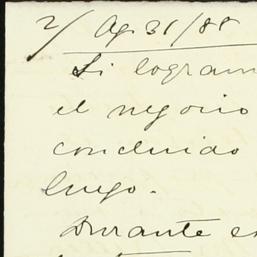 2/ Ag. 31/88
Si logram
el negocio
concluido
luego.
Durante es